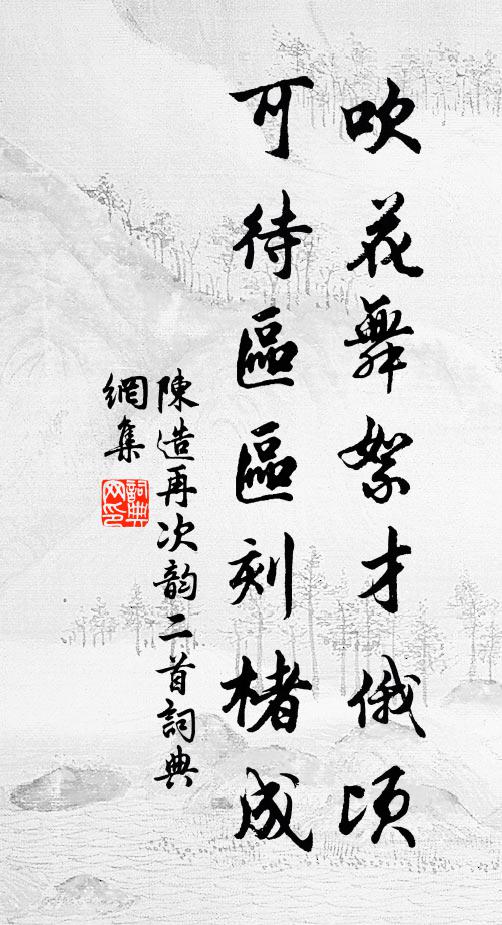 吹花舞絮才俄頃
可待區區刻楮成
陳造再次韵二首詞典
網集
詞典
网印